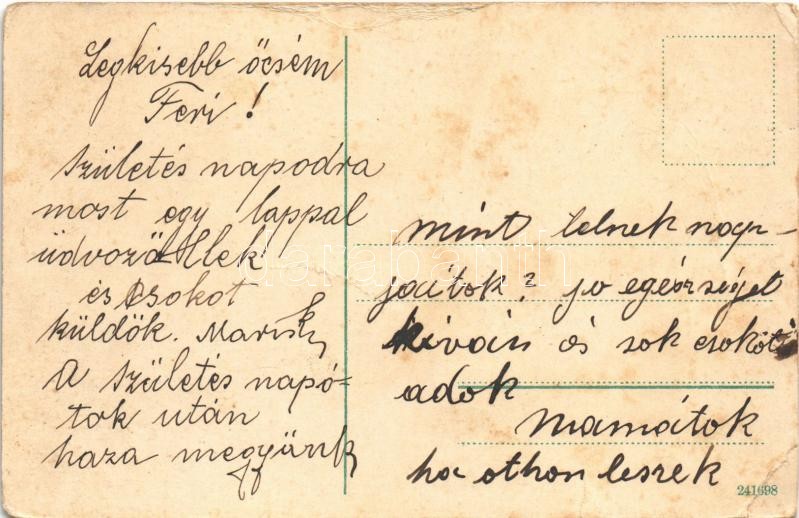 Legkisebb őcsém
Feri!
Születés napodra
most egy lappal
üdvozöllek
és Csokot
küldök. Mariska
A születés napó-
tok után
haza megyünk
mint lelnek nagy-
jaitok? jo egéorséget
kíván és sok csokót
adok
Mamátok
ha othon leszek
241698
darabanth